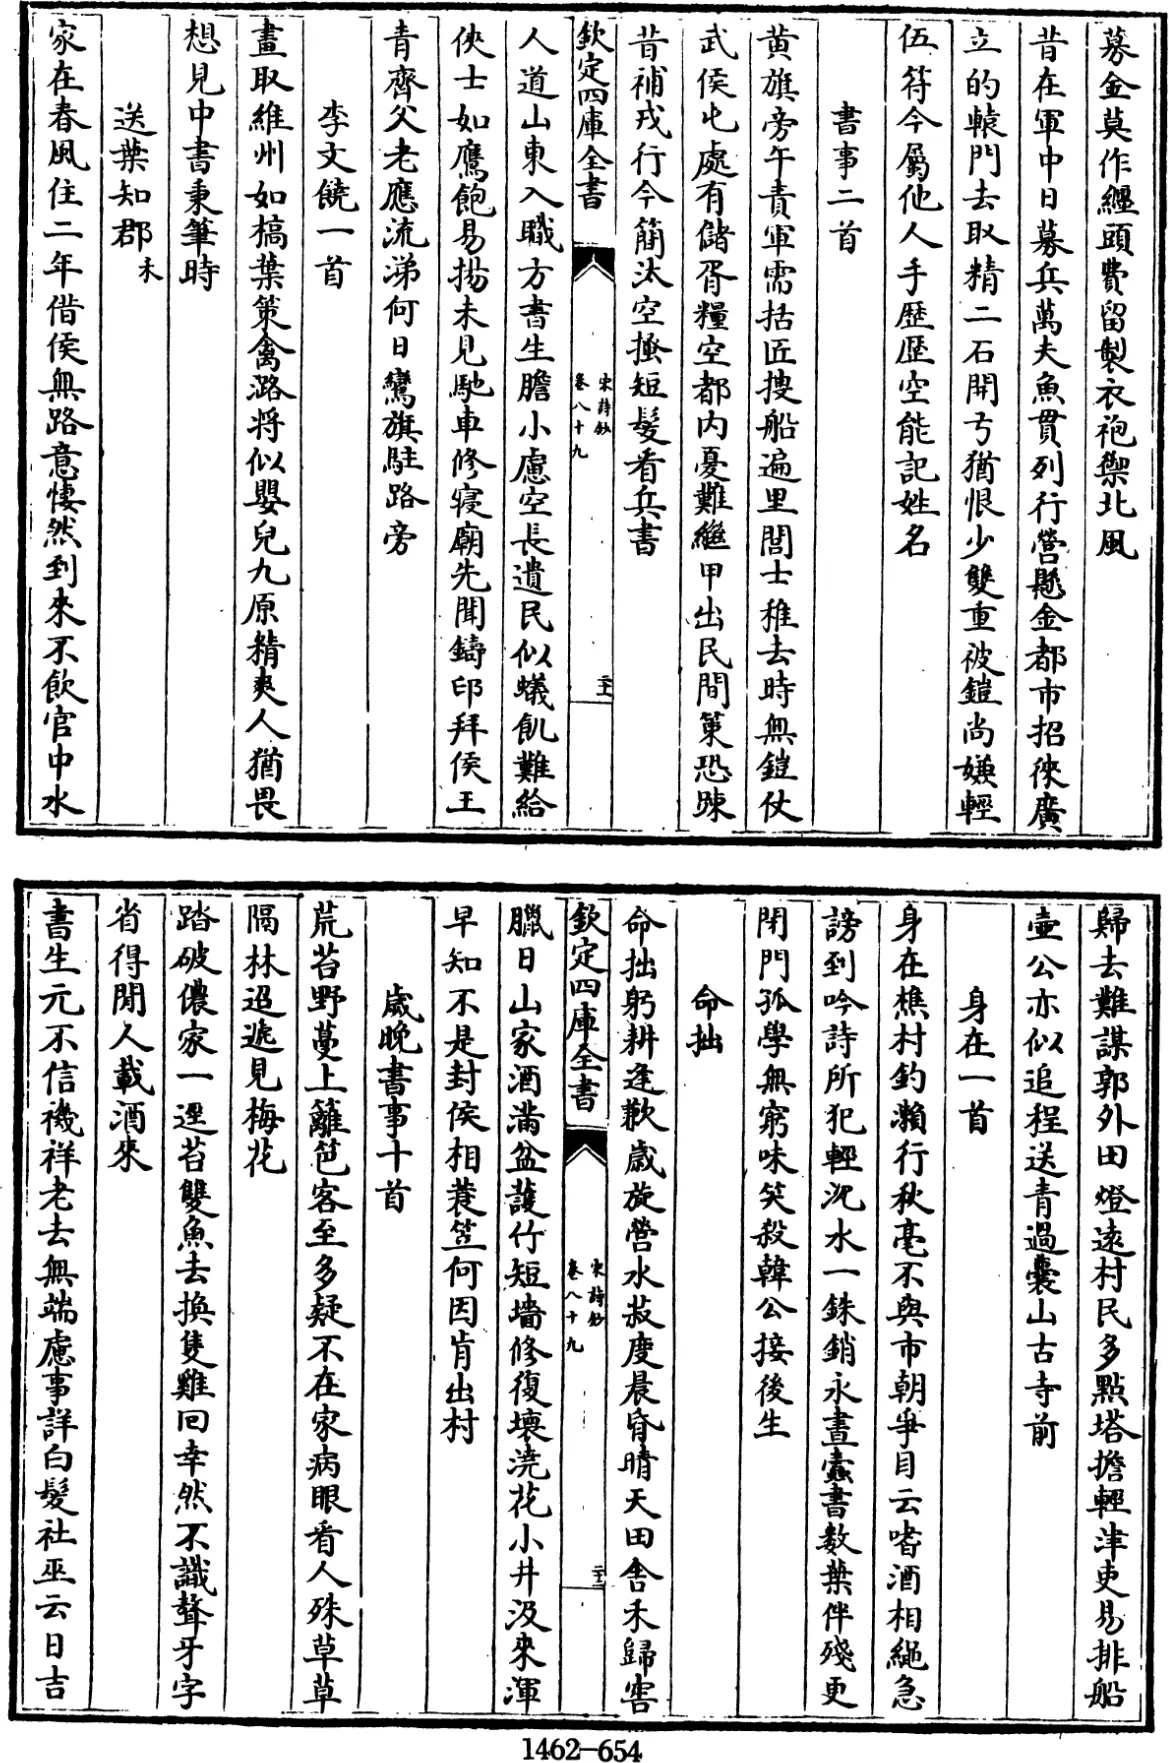 募金莫作纏頭費留製衣袍禦北風
昔在軍中日募兵萬夫魚貫列行營懸金都市招徠廣
立的轅門去取精二石開弓猶恨少雙重被鎧尚嫌輕
伍符今屬他人手歷歷空能記姓名
書事二首
黄旗旁午責軍需括匠搜船遍里閭士稚去時無鎧仗
武侯屯處有儲胥糧空都内憂難繼甲出民間箽恐疎
昔補戎行今簡汰空搔短髮看兵書
欽定四庫全書
宋詩鈔
卷八十九
二十一
人道山東入職方書生膽小慮空長遺民似蟻飢難給
俠士如鷹飽易揚未見馳車修寝廟先聞鑄印拜侯王
青齊父老應流涕何日鸞旗駐路旁
李文饒一首
畫取維州如槁葉策禽潞將似嬰兒九原精爽人猶畏
想見中書秉筆時
送葉知郡禾
家在春風住二年借侯無路意悽然到來不飲官中水
歸去難謀郭外田燈遠村民多點塔擔輕津吏易排船
壷公亦似追程送青過囊山古寺前
身在一首
身在樵村釣瀨行秋毫不與市朝爭目云嗜酒相繩急
謗到吟詩所犯輕沉水一銖銷永晝蠹書數葉伴殘更
閉門孤學無窮味笑殺韓公接後生
命拙
命拙躬耕逢歉歲旋營水菽度晨昏晴天田舎禾歸窖
欽定四庫全書
宋詩鈔
卷八十九
二十二
臘日山家酒滿盆護竹短墻修復壊澆花小井汲來渾
早知不是封侯相蓑笠何因肯出村
歲晚書事十首
荒苔野蔓上籬笆客至多疑不在家病眼看人殊草草
隔林迢遞見梅花
踏破儂家一逕苔雙魚去換隻雞回幸然不識聱牙字
省得閒人載酒來
書生元不信禨祥老去無端慮事詳白髮社巫云日吉
1462-654